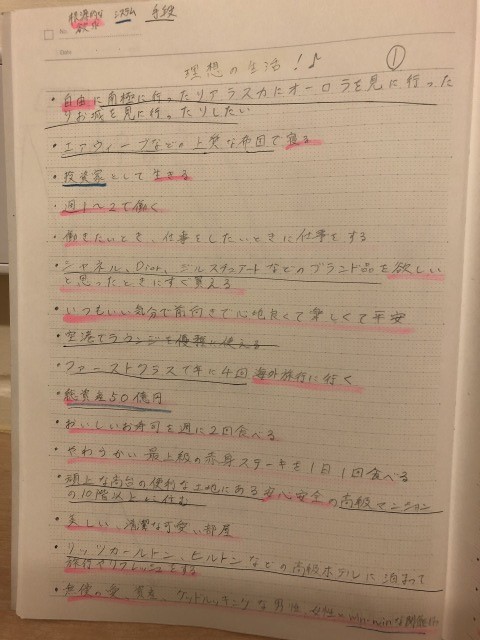 根源的な システム 手段
欲求
No.
Date
理想の生活!♪ ①
・自由に南極に行ったりアラスカにオーロラを見に行った
りお城を見に行ったりしたい
・エアウィーブなどの上質な布団で寝る
・投資家として生きる
・週1〜2で働く
・働きたいとき、仕事をしたいときに仕事をする
・シャネル、Dior、ジルスチュアートなどのブランド品を欲しい
と思ったときにすぐ買える
・いつもいい気分で前向きで心地良くて楽しくて平安
・空港でラウンジを優雅に使える
・ファーストクラスで年に4回海外旅行に行く
・総資産50億円
・おいしいお寿司を週に2回食べる
・やわらかい最上級の赤身ステーキを1日1回食べる
・頑丈な高台の便利な土地にある安心安全の高級マンション
の10階以上に住む
・美しい、清潔な可愛い部屋
・リッツカールトン、ヒルトンなどの高級ホテルに泊まって
旅行やリフレッシュをする
・無償の愛、資産、グッドルッキングな男性、女性とwin-winな関係に